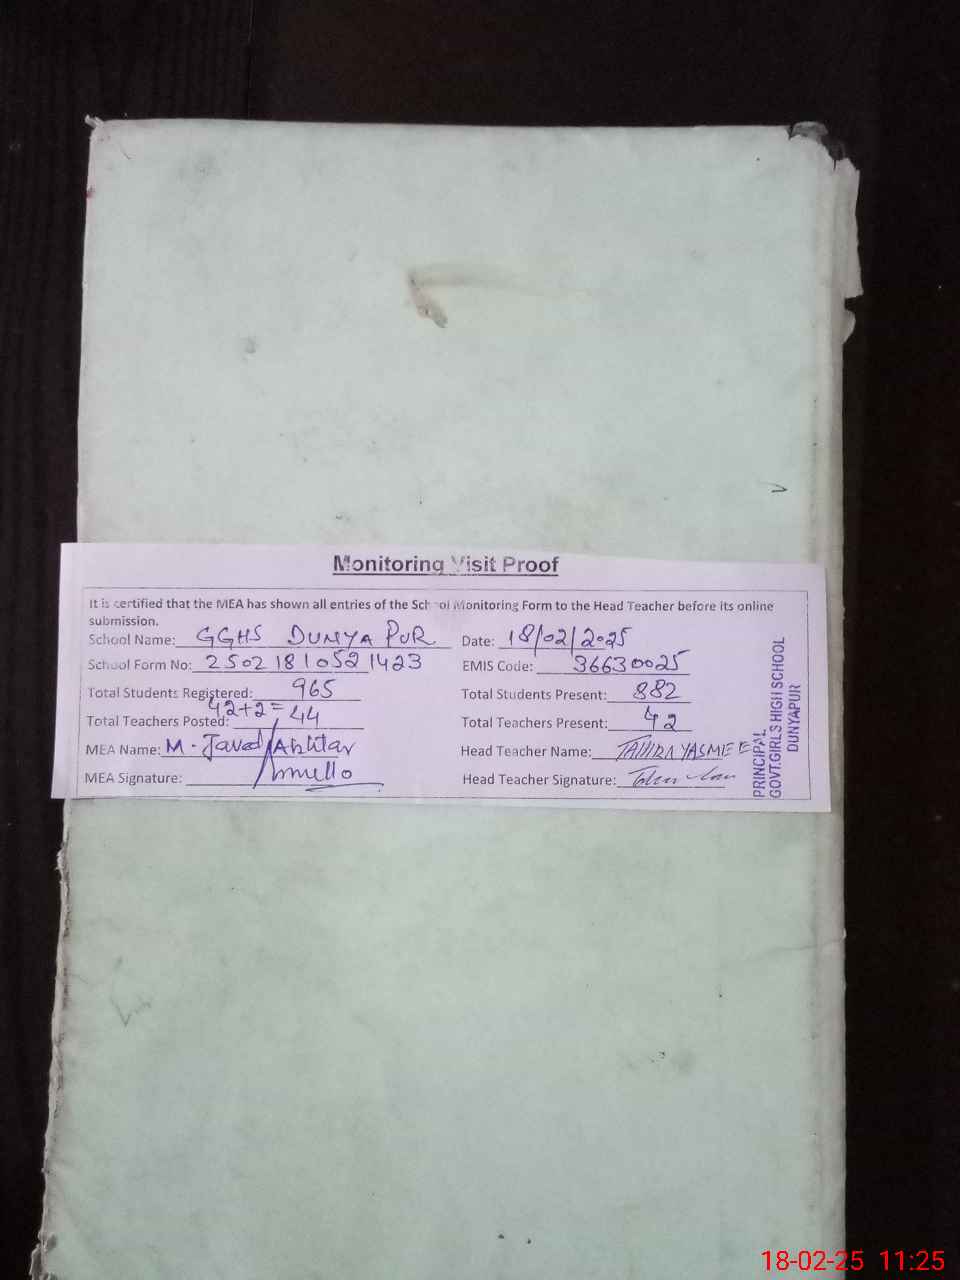 Monitoring Visit Proof
It is certified that the MEA has shown all entries of the School Monitoring Form to the Head Teacher before its online
submission.
School Name: GGHS DUNYA PUR Date: 18/02/2025
School Form No: 25021810521423 EMIS Code: 36630025
Total Students Registered: 965 Total Students Present: 882
Total Teachers Posted: 42+2=44 Total Teachers Present: 42
MEA Name: M. Javed Akhtar Head Teacher Name: TAHIRA YASMEE
MEA Signature: Head Teacher Signature:
PRINCIPAL
GOVT.GIRLS HIGH SCHOOL
DUNYAPUR
18-02-25 11:25